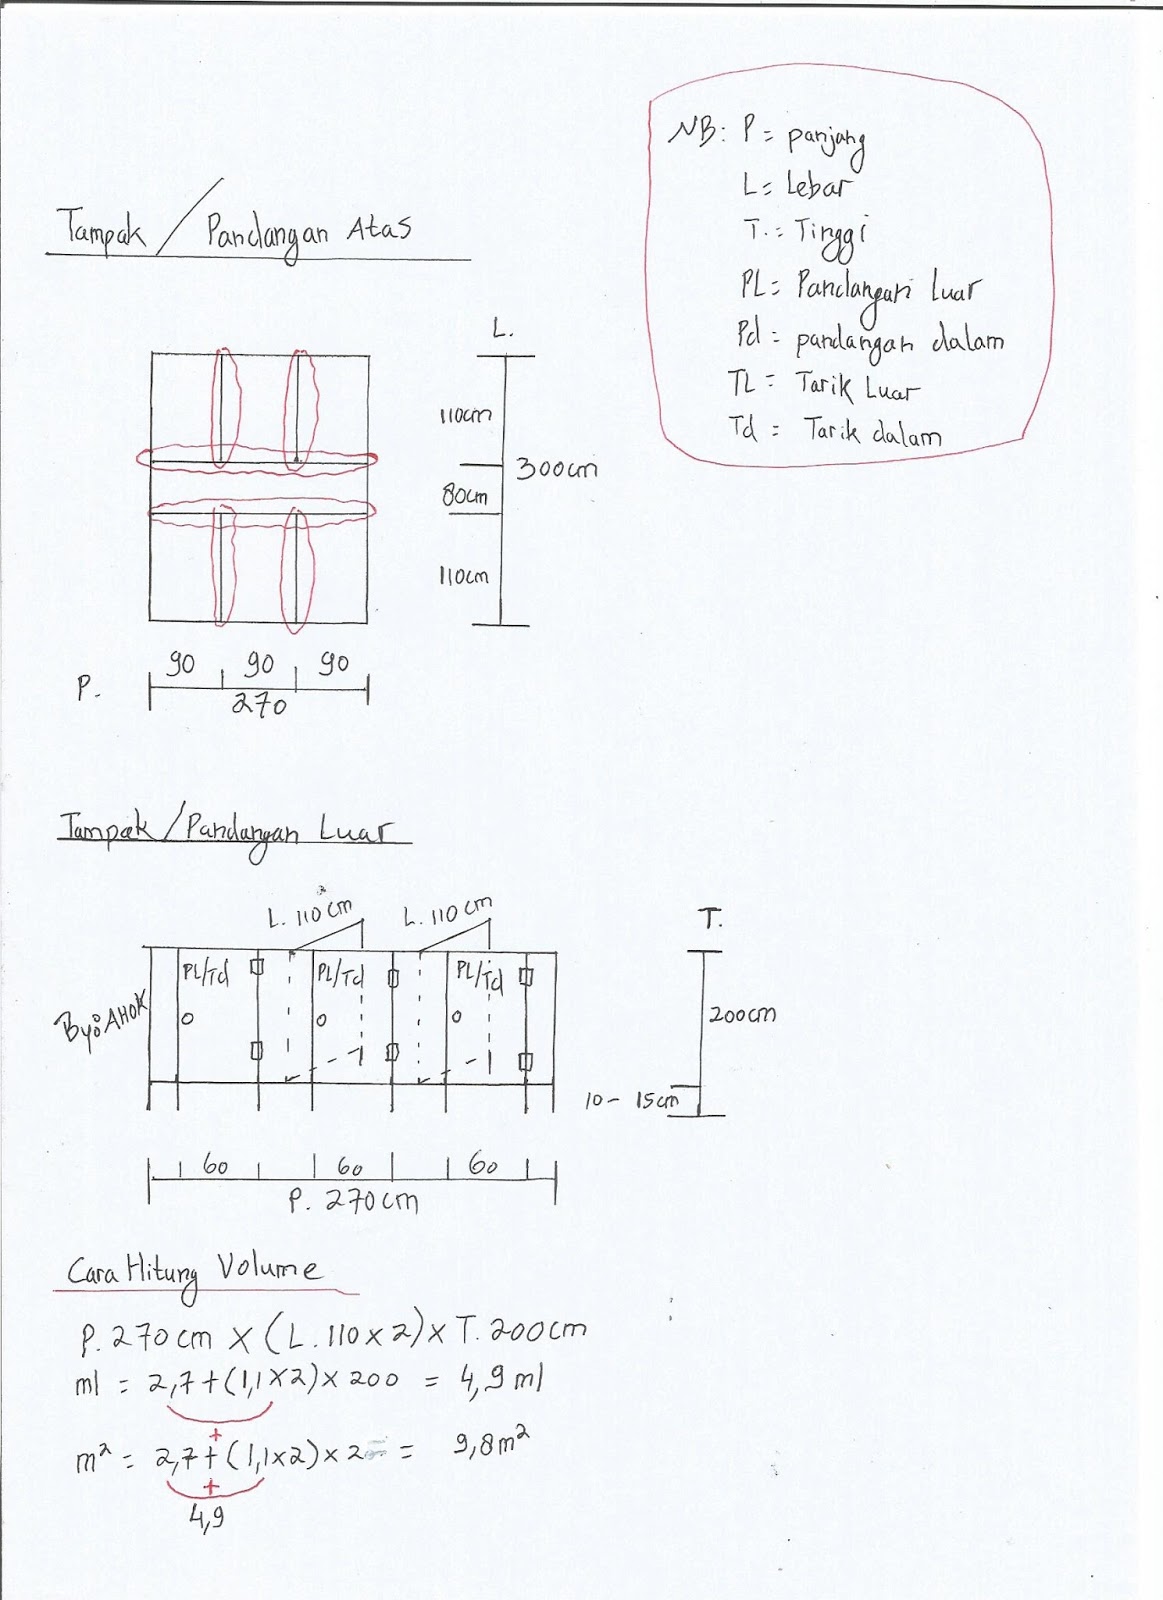 NB: P = panjang
L = Lebar
T. = Tinggi
PL = Pandangan Luar
Pd = pandangan dalam
TL = Tarik Luar
Td = Tarik dalam
Tampak / Pandangan Atas
L.
110cm
300cm
80cm
110cm
90 90 90
P.
270
Tampak/Pandangan Luar
L. 110cm L. 110cm
T.
PL/Td PL/Td PL/Td
By: AHOK
200cm
10 - 15cm
60 60 60
P. 270cm
Cara Hitung Volume
P. 270cm x (L. 110x2) x T. 200cm
ml = 2,7+(1,1x2)x 200 = 4,9 ml
+
m² = 2,7+(1,1x2)x 2 = 9,8m²
+
4,9